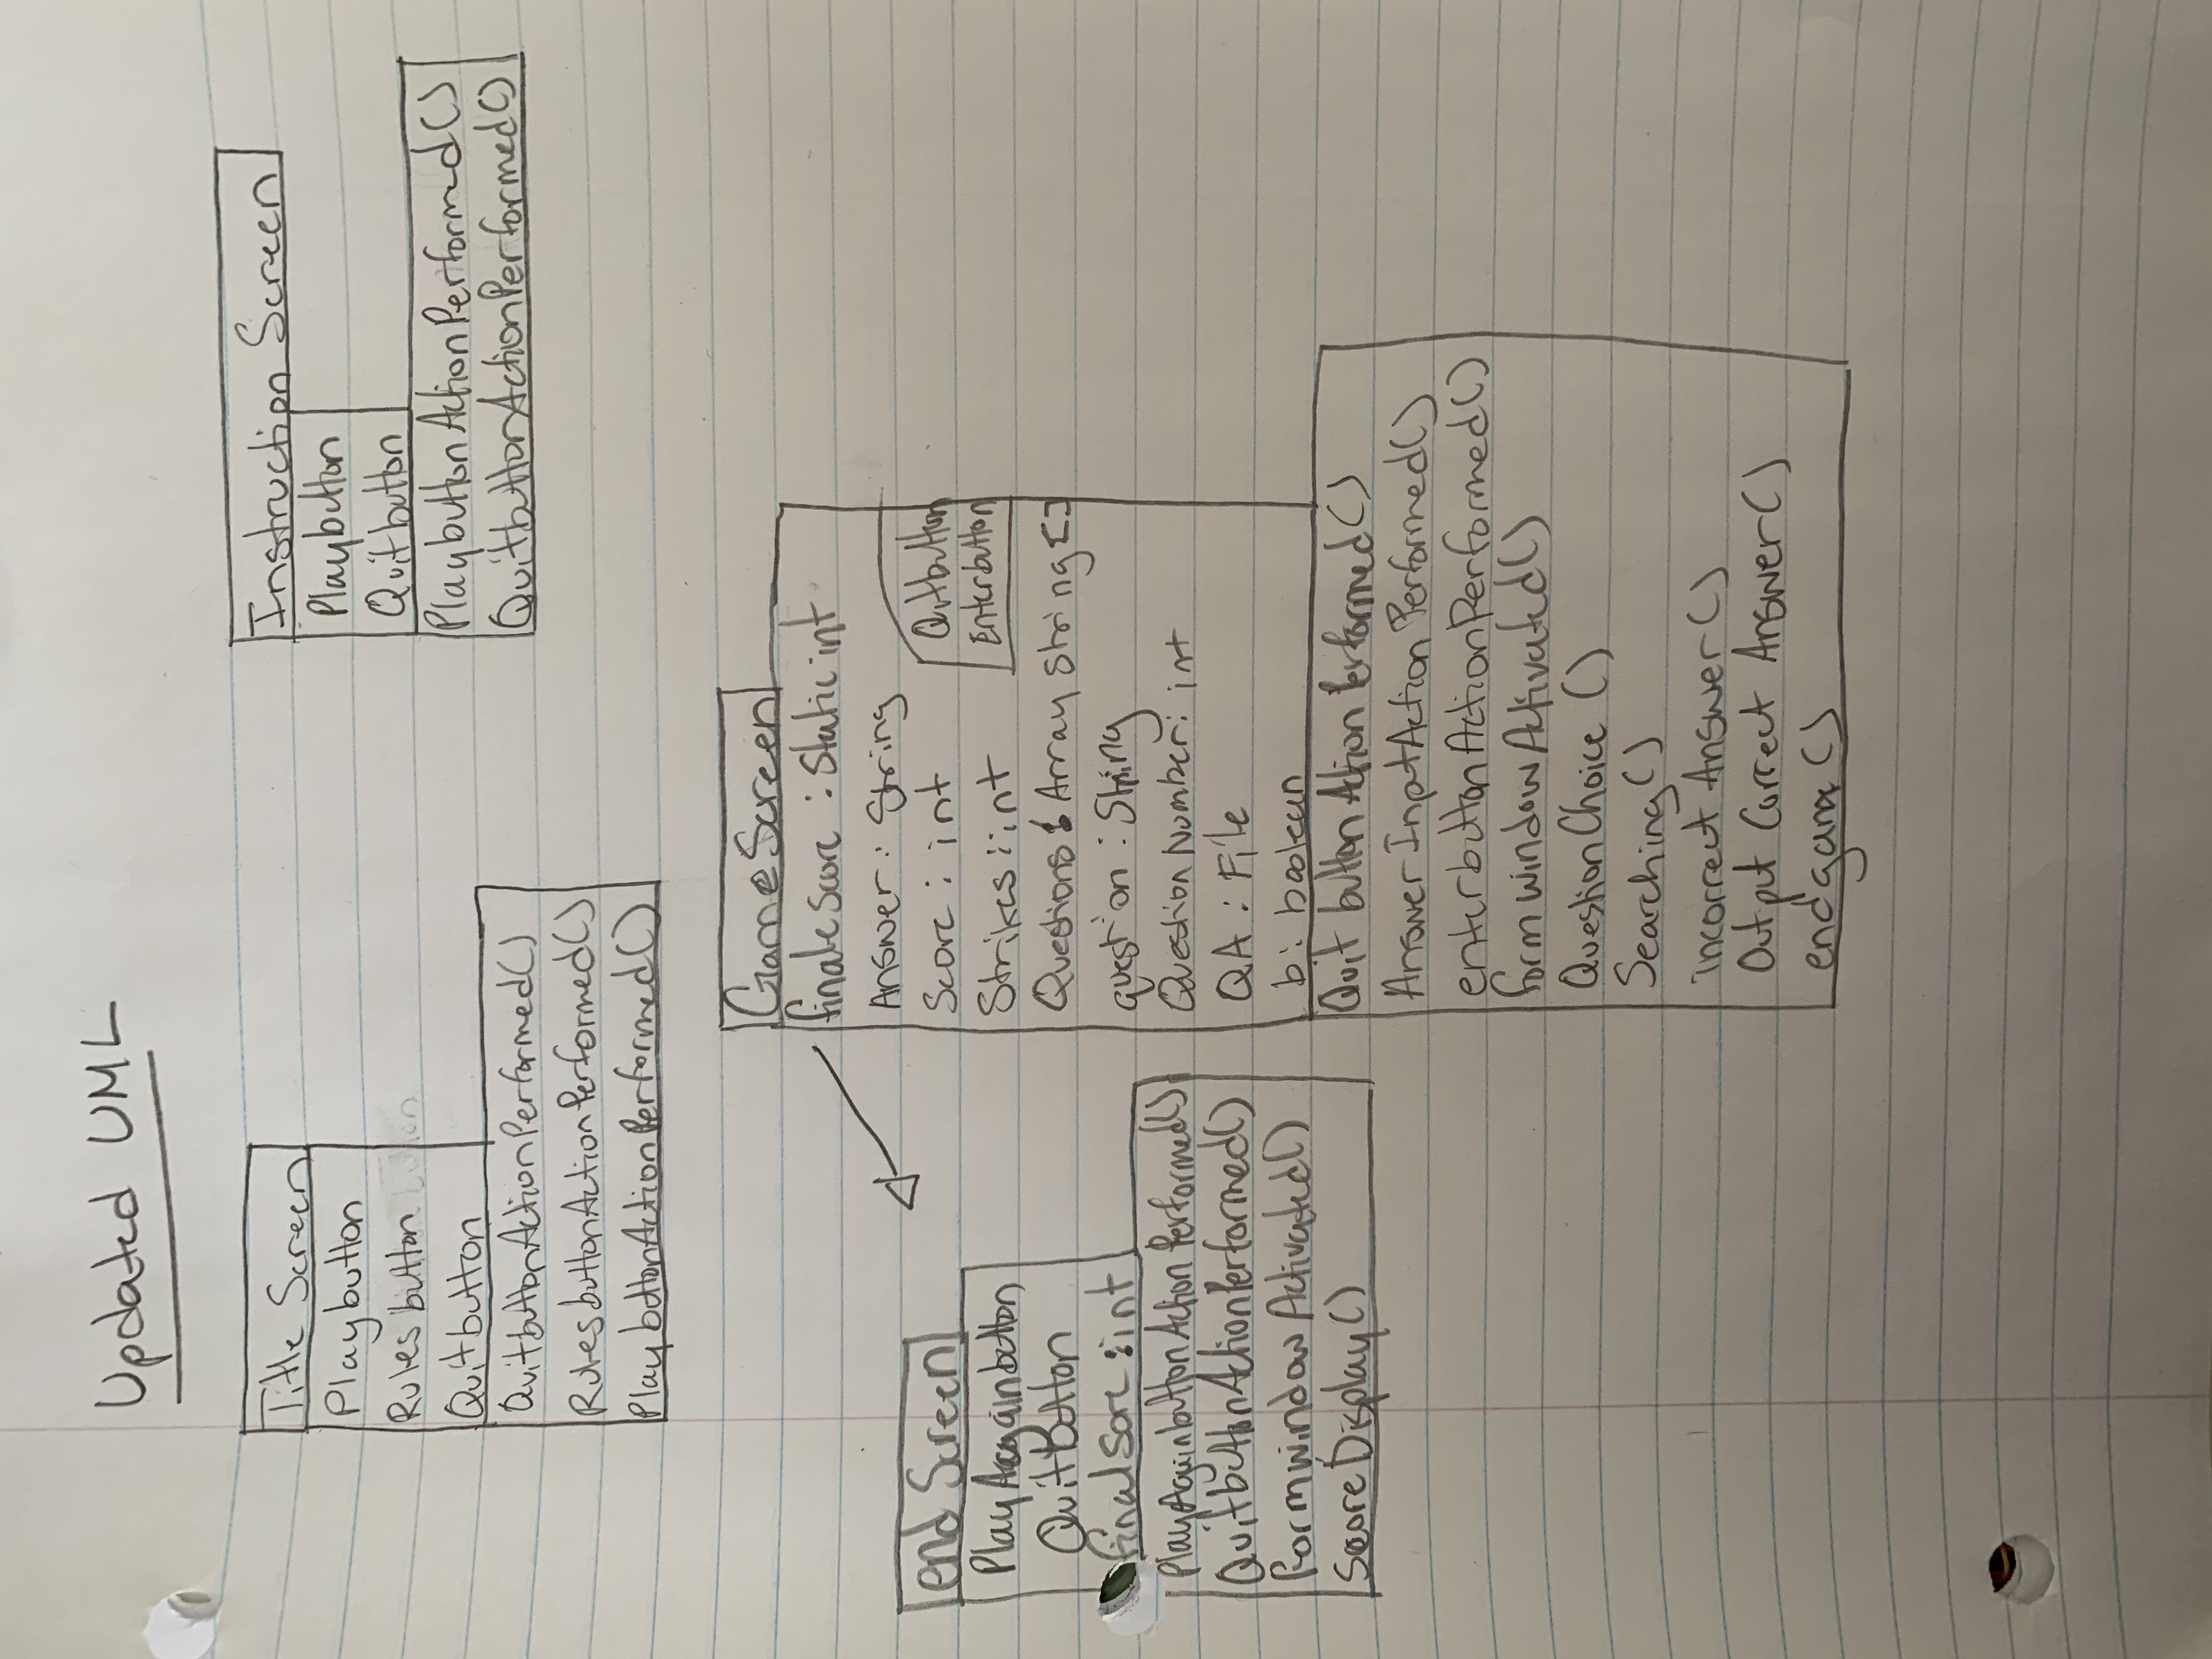 Updated UML
Title Screen
Playbutton
Rules button
Quitbutton
QuitbuttonActionPerformed()
RulesbuttonActionPerformed()
PlaybuttonActionPerformed()
Instruction Screen
Playbutton
Quitbutton
PlaybuttonActionPerformed()
QuitbuttonActionPerformed()
GameScreen
finaleScore : Static int
Answer : String
Score : int
Strikes : int
Quitbutton
Enterbutton
Questions : Array String []
question : String
QuestionNumber: int
QA : File
b : boolean
Quit buttonActionPerformed()
AnswerInputActionPerformed()
enterbuttonActionPerformed()
formwindowActivated()
QuestionChoice ()
Searching()
incorrect Answer()
Output Correct Answer()
endgame ()
end Screen
PlayAgainbutton
Quitbutton
finalSorc : int
PlayAgainbuttonActionPerformed()
QuitbuttonActionPerformed()
formwindowActivated()
ScoreDisplay()